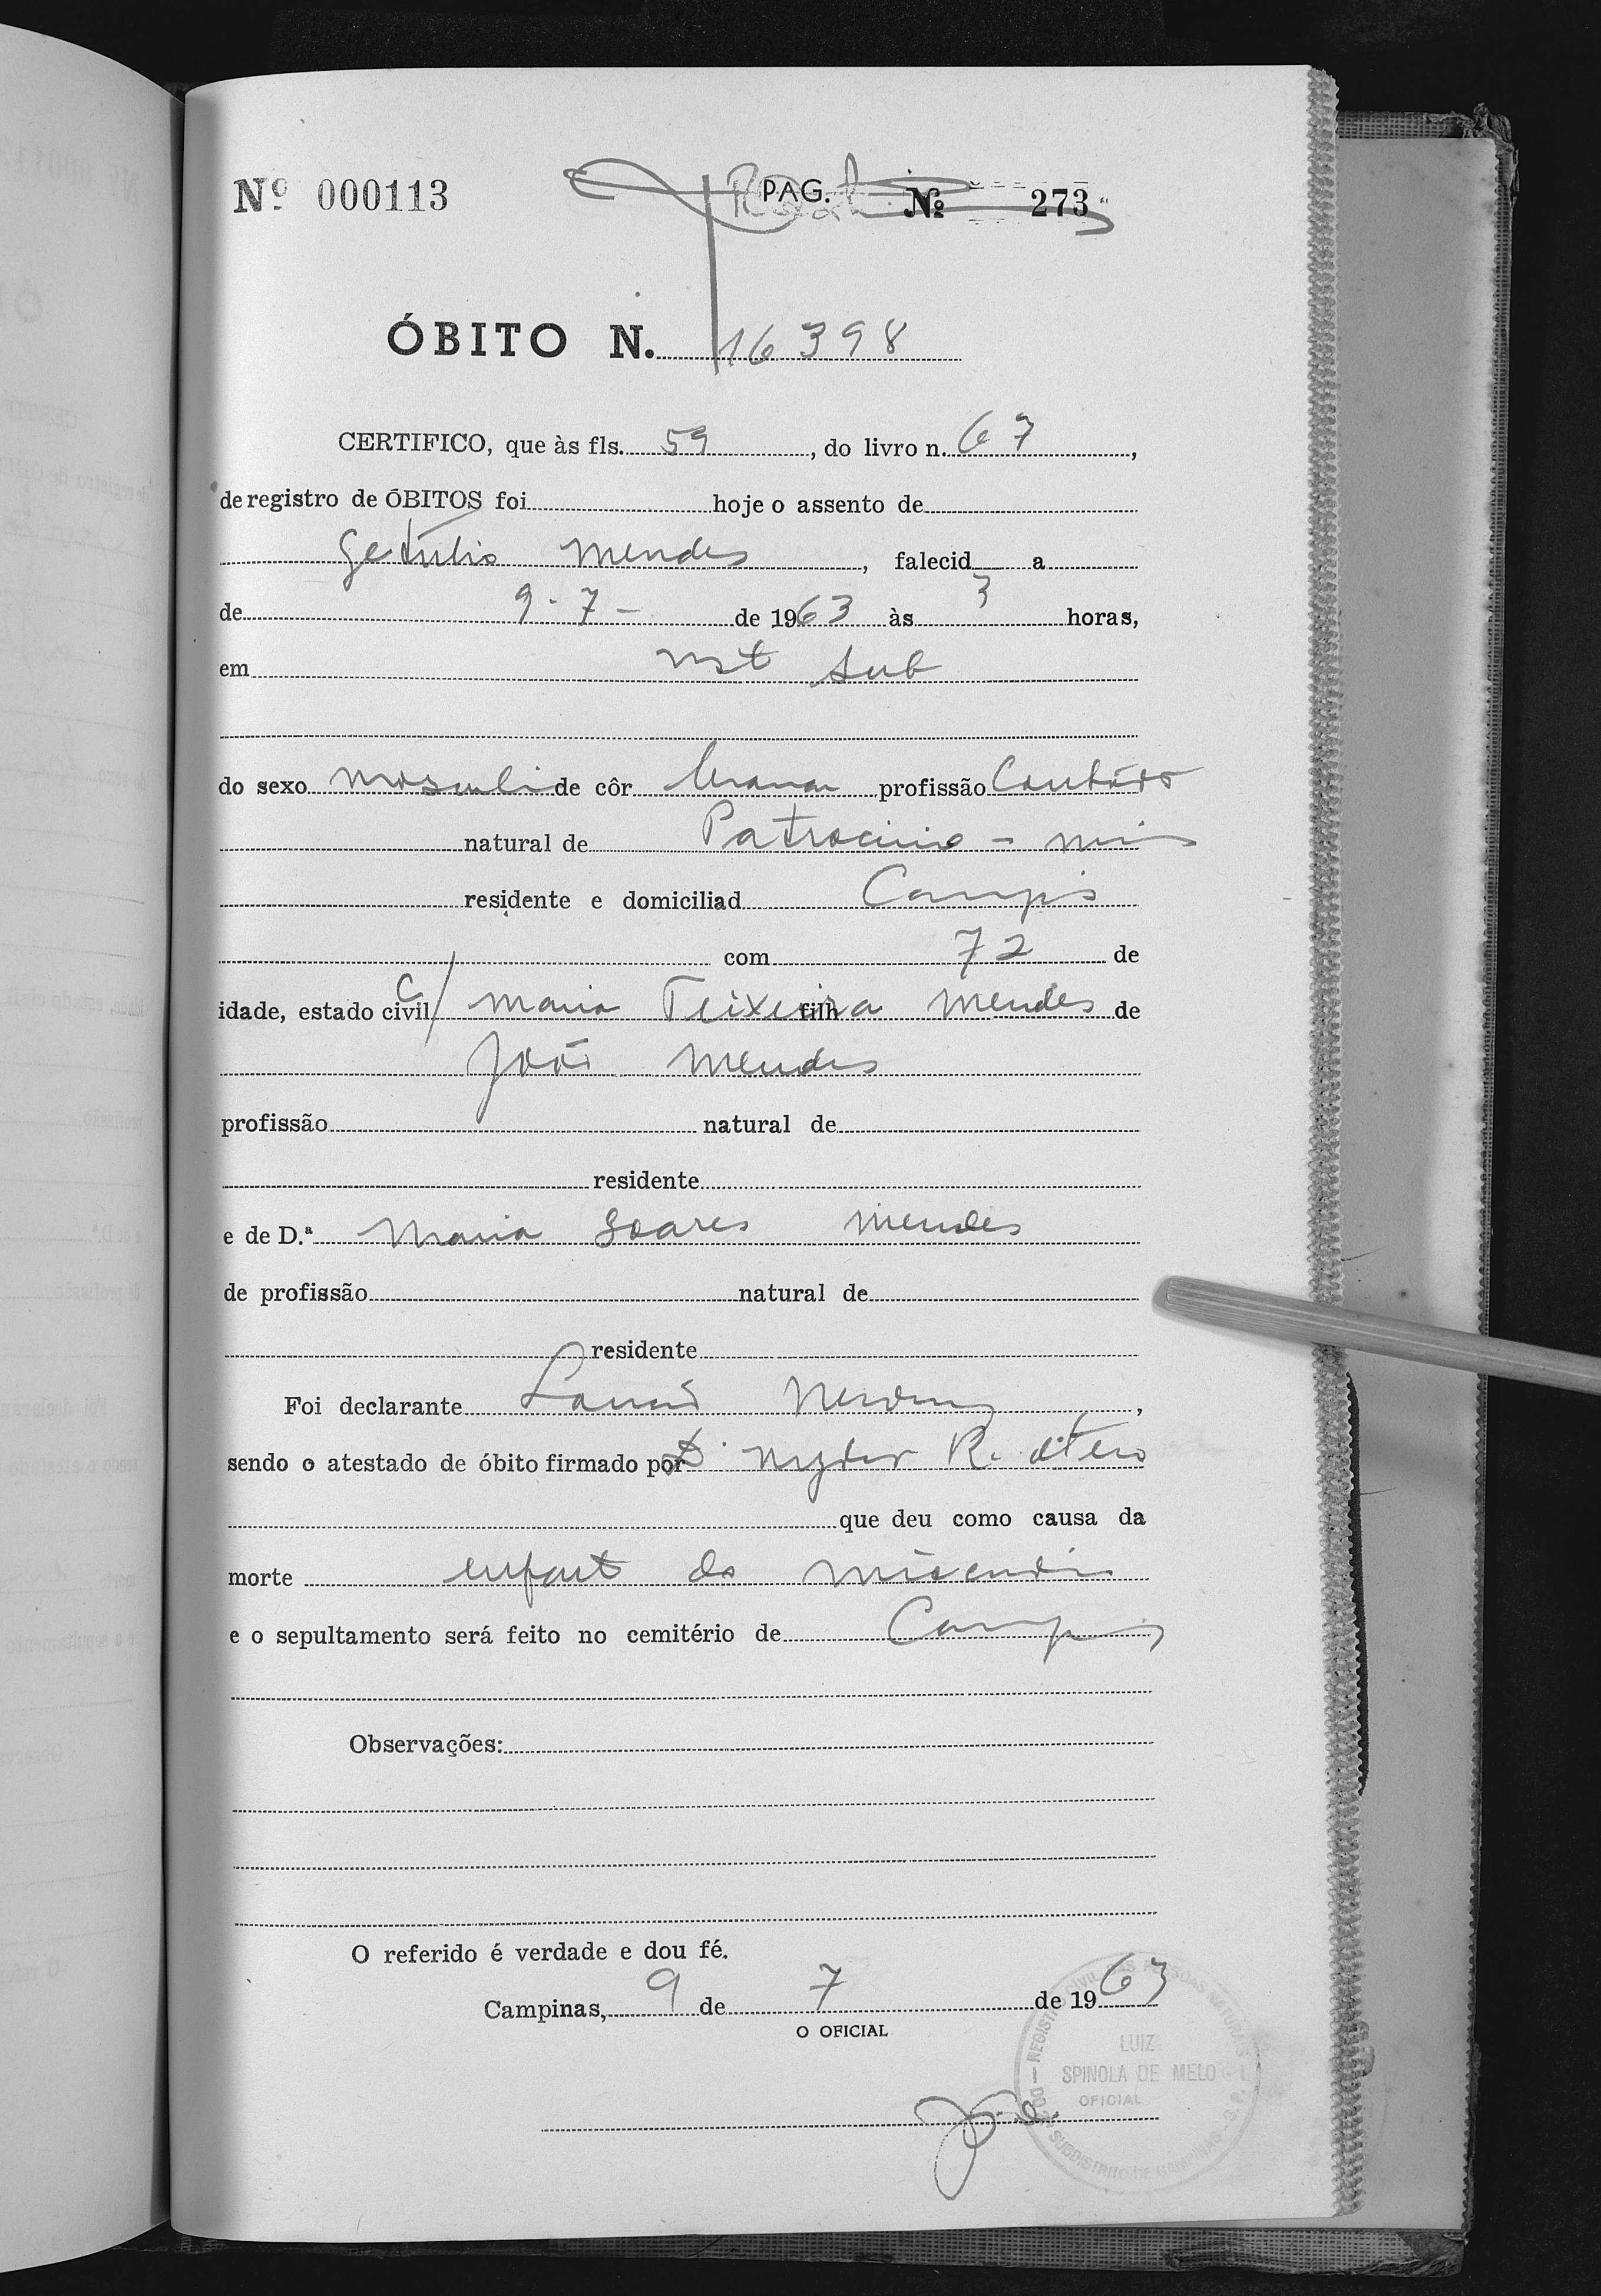 Nº 000113 PAG. Nº 273
ÓBITO N. 16398
CERTIFICO, que às fls. 59, do livro n. 67,
de registro de ÓBITOS foi hoje o assento de
Getúlio Mendes, falecid a
de 9-7- de 1963 às 3 horas,
em nst Sub
do sexo masculi de côr branca profissão Contador
natural de Patrocinio - min
residente e domiciliad Camps
com 72 de
idade, estado civil c/ Maria Teixeira Mendes filh de
João Mendes
profissão natural de
residente
e de D.ª Maria Soares Mendes
de profissão natural de
residente
Foi declarante
sendo o atestado de óbito firmado por D. R. Otero
que deu como causa da
morte enfart do miocardio
e o sepultamento será feito no cemitério de Camps
Observações:
O referido é verdade e dou fé.
Campinas, 9 de 7 de 1963
O OFICIAL
REGISTRO CIVIL DAS PESSOAS NATURAIS
LUIZ
SPINOLA DE MELO
OFICIAL
SUBDISTRITO DE CAMPINAS - S. P.